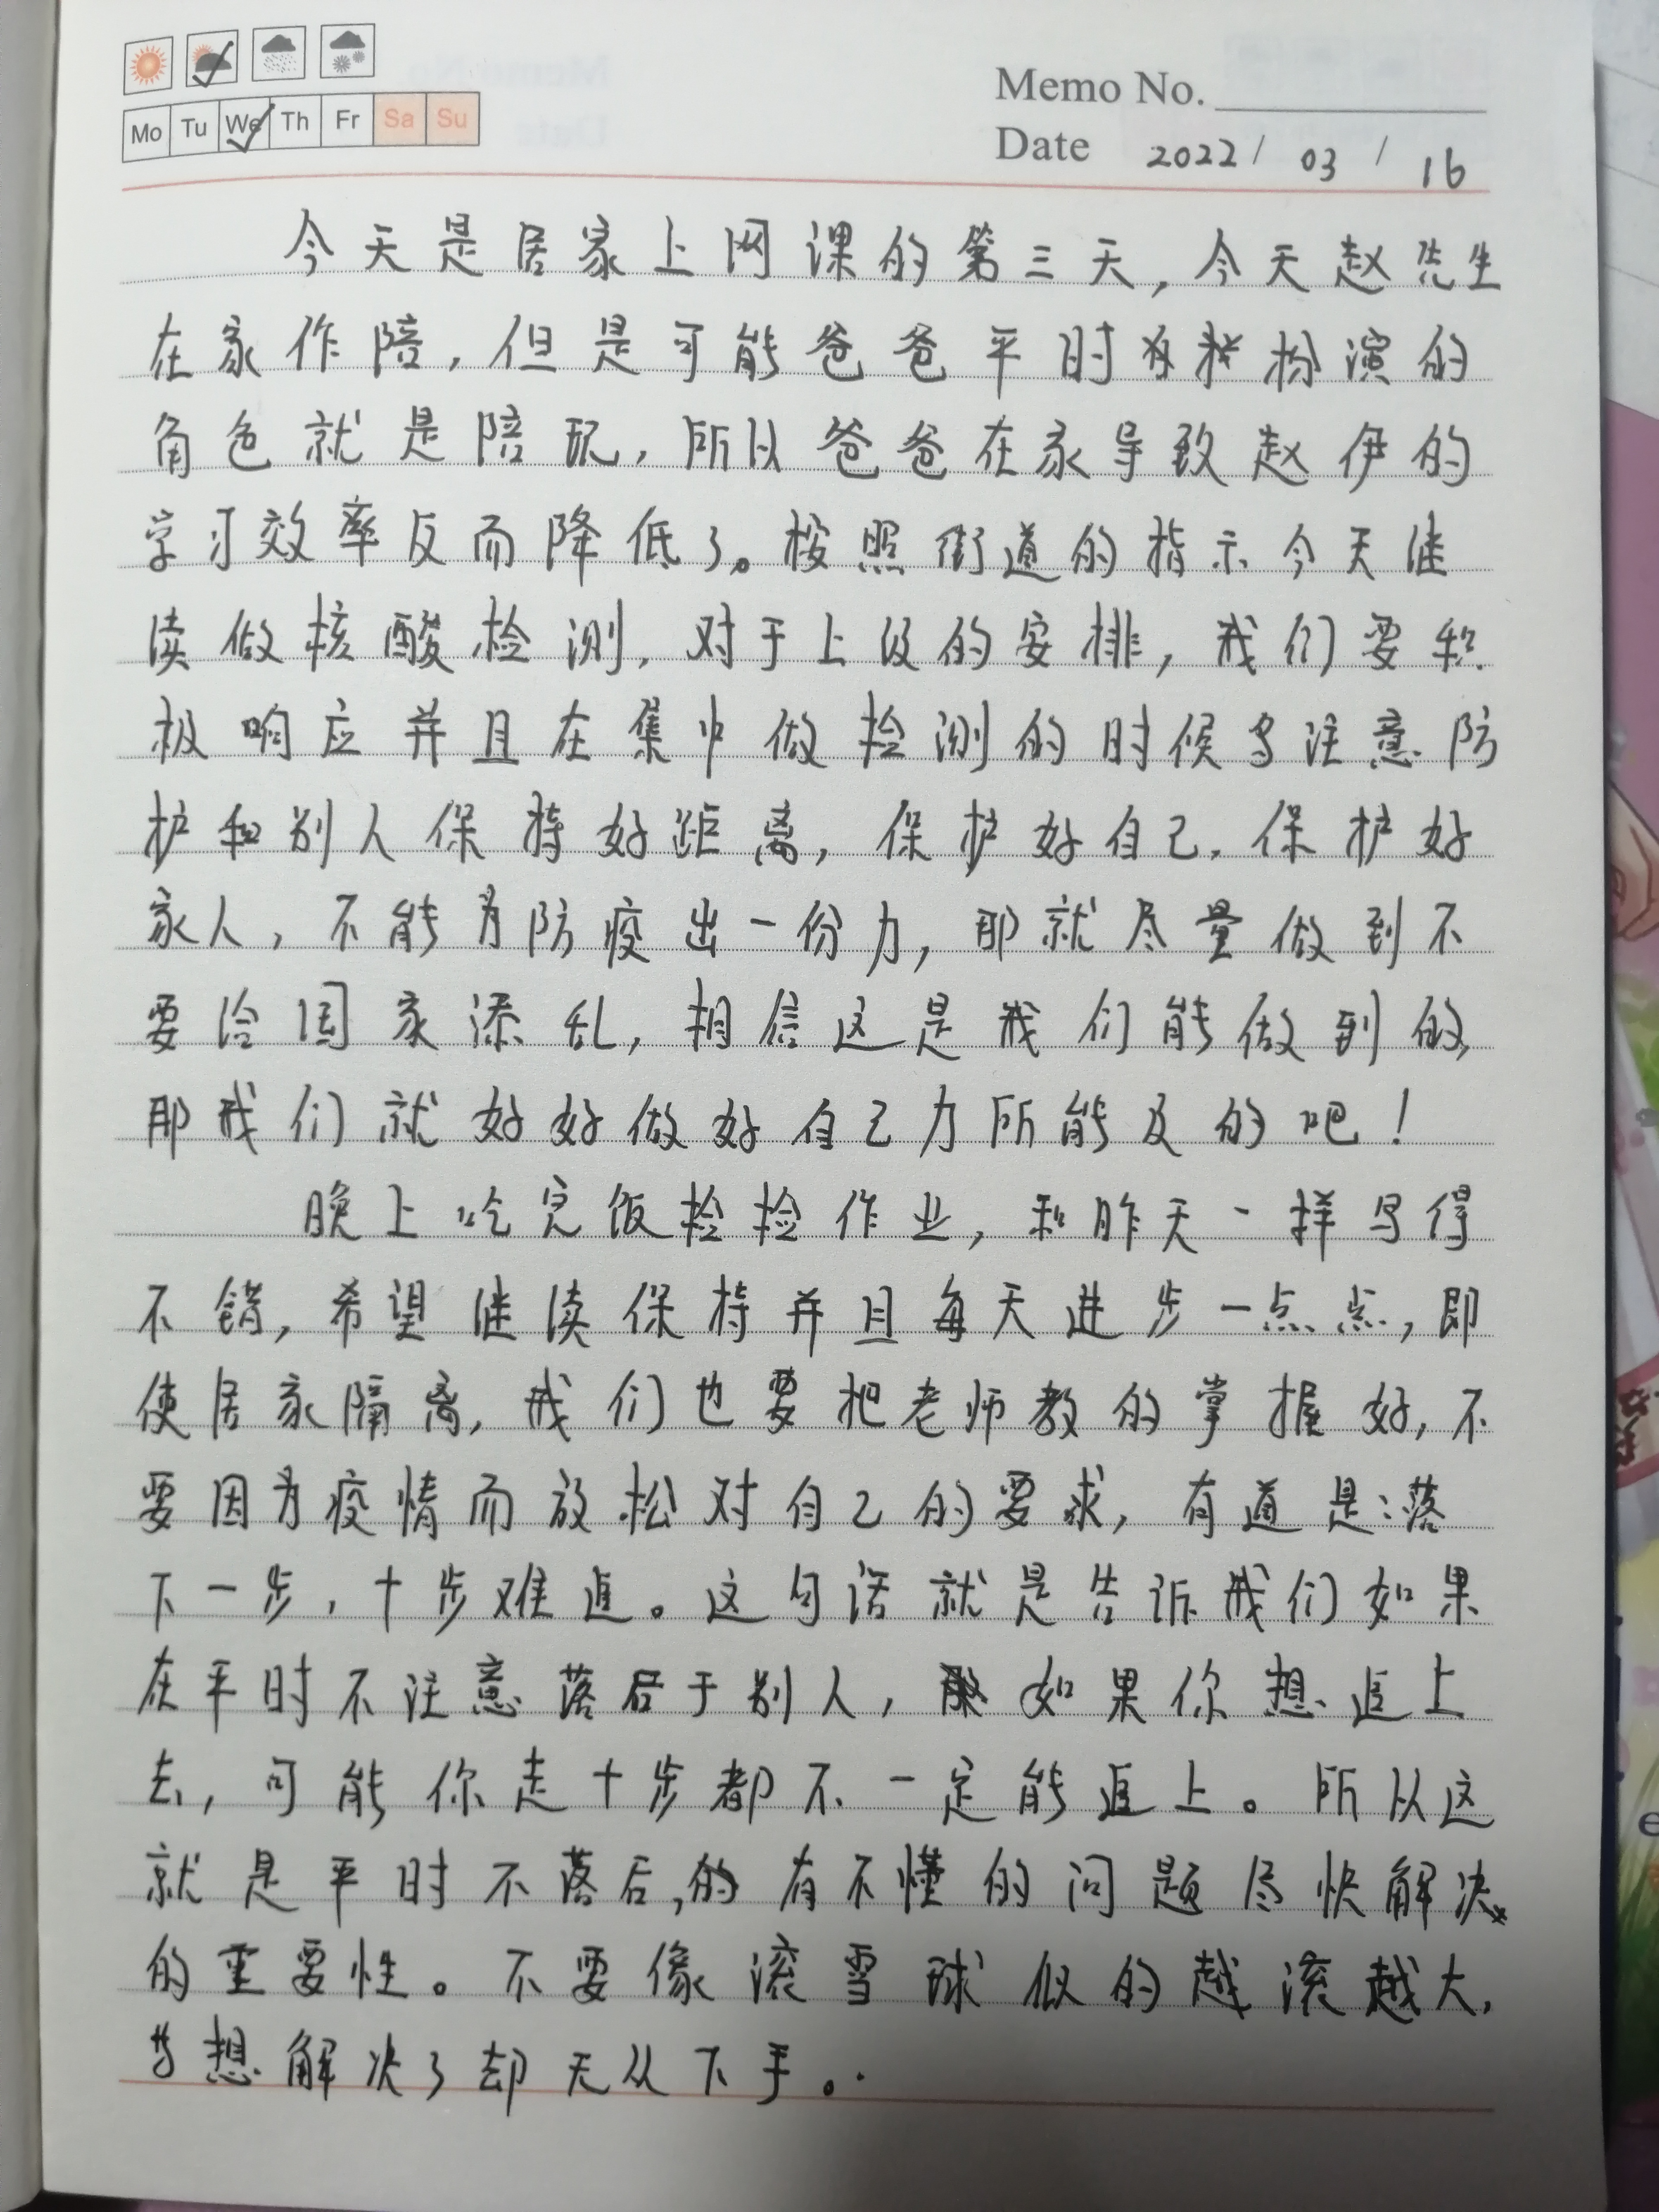 Mo Tu We Th Fr Sa Su
Memo No.
Date 2022/03/16
今天是居家上网课的第三天，今天赵先生
在家作陪，但是可能爸爸平时扮演的
角色就是陪玩，所以爸爸在家导致赵伊的
学习效率反而降低了。按照街道的指示今天继
续做核酸检测，对于上级的安排，我们要积
极响应并且在集中做检测的时候注意防
护和别人保持好距离，保护好自己，保护好
家人，不能为防疫出一份力，那就尽量做到不
要给国家添乱，相信这是我们能做到的，
那我们就好好做好自己力所能及的吧！
晚上吃完饭检检作业，和昨天一样写得
不错，希望继续保持并且每天进步一点点，即
使居家隔离，我们也要把老师教的掌握好，不
要因为疫情而放松对自己的要求，有道是：落
下一步，十步难追。这句话就是告诉我们如果
在平时不注意落后于别人，如果你想追上
去，可能你走十步都不一定能追上。所以这
就是平时不落后，的有不懂的问题尽快解决
的重要性。不要像滚雪球似的越滚越大，
当想解决了却无从下手。